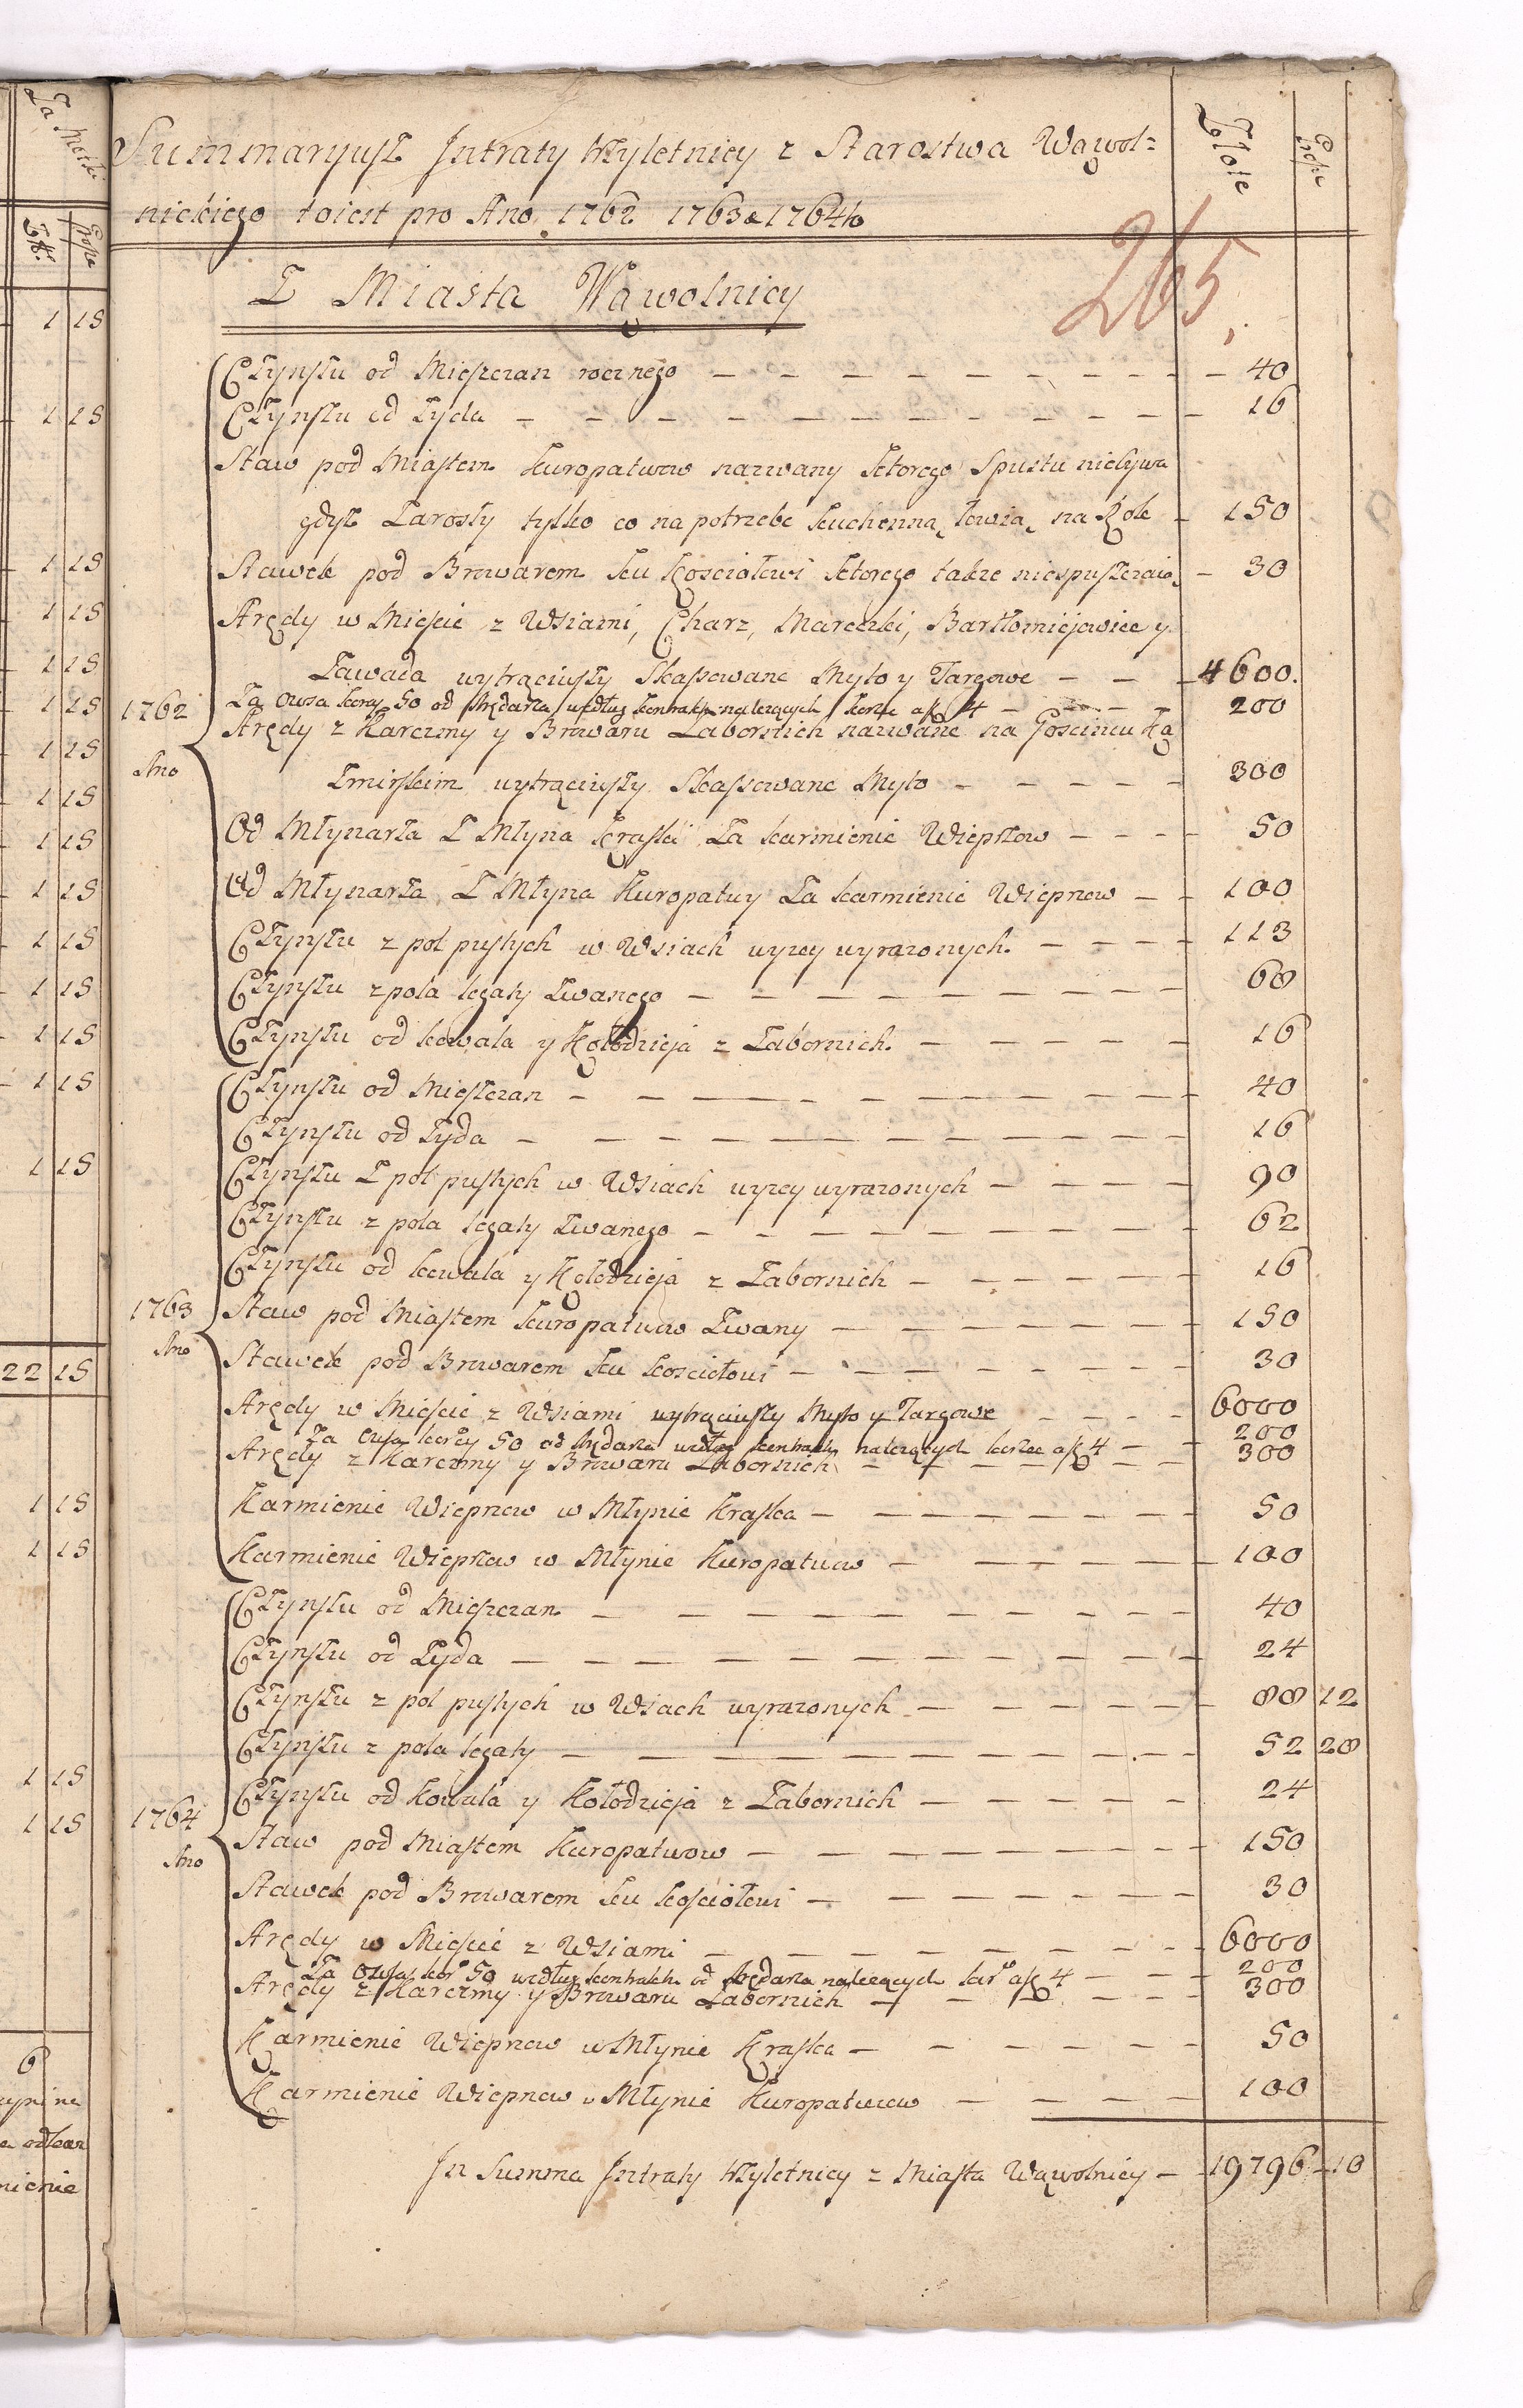 Za Morki
Złł: Grosze
Summaryusz Intraty trzyletniey z Starostwa Wąwol=
nickiego to iest pro Ano 1762 1763 & 1764to
Złote
Grosze
265.
Z Miasta Wąwolnicy
Czynszu od Mieszczan rocznego 40
Czynszu od Zyda 16
Staw pod Miastem Kuropatwow nazwany ktorego Spustu niebywa
gdysz Zarosły tylko co na potrzebę kuchenną łowią na Rok 150
Stawek pod Browarem ku Kosciołowi ktorego także niespuszczaią 30
Arędy w Mieście z Wsiami, Charz, Mareczki, Bartłomiejowice y
Zawada wytrąciwszy Skassowane Myto y Targowe 4600.
Za Owsa korcy 50 od Arędarza według kontraktu należących korzec a f 4 200
1762
Arędy z Karczmy y Browaru Zabornich nazwane na Gościncu Ka
Ano
Zmirskim wytrąciwszy Skassowane Myto 300
Od Młynarza Z Młyna Kraski Za karmienie Wieprzow 50
Od Młynarza Z Młyna Kuropatwy Za karmienie Wieprzow 100
Czynszu z pol pustych w Wsiach wyzey wyrazonych 113
Czynszu z pola legaty Zwanego 68
Czynszu od kowala y Kołodzieja z Zabornich 16
Czynszu od Mieszczan 40
Czynszu od Zyda 16
Czynszu Z pol pustych w Wsiach wyzey wyrazonych 90
Czynszu z pola legaty Zwanego 62
Czynszu od kowala y Kołodzieja z Zabornich 16
1763
Staw pod Miastem kuropatwow Zwany 150
Ano
Stawek pod Browarem ku kosciołowi 30
Arędy w Mieście z Wsiami wytrąciwszy Myto y Targowe 6000
Za Owsa korcy 50 od Arędarza według kontraktu należących korzec a f 4 200
Arędy z Karczmy y Browaru Zabornich 300
Karmienie Wieprzow w Młynie Kraska 50
Karmienie Wieprzow w Młynie Kuropatwow 100
Czynszu od Mieszczan 40
Czynszu od Zyda 24
Czynszu z pol pustych w Wsiach wyrazonych 88 12
Czynszu z pola legaty 52 28
Czynszu od Kowala y Kołodzieja z Zabornich 24
1764
Staw pod Miastem Kuropatwow 150
Ano
Stawek pod Browarem ku kościołowi 30
Arędy w Mieście z Wsiami 6000
Za Owsa kor 50 według kontraktu od Arędarza należących kor a f 4 200
Arędy z Karczmy y Browaru Zabornich 300
Karmienie Wieprzow w Młynie Kraska 50
Karmienie Wieprzow w Młynie Kuropatwow 100
In Summa Intraty trzyletniey z Miasta Wąwolnicy 19796 10